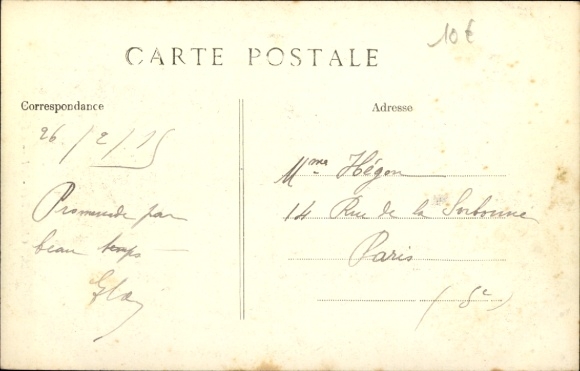 10€
CARTE POSTALE
Correspondance
Adresse
26/2/15
Promenade par
beau temps
Mme Hégon
14 Rue de la Sorbonne
Paris
(5e)